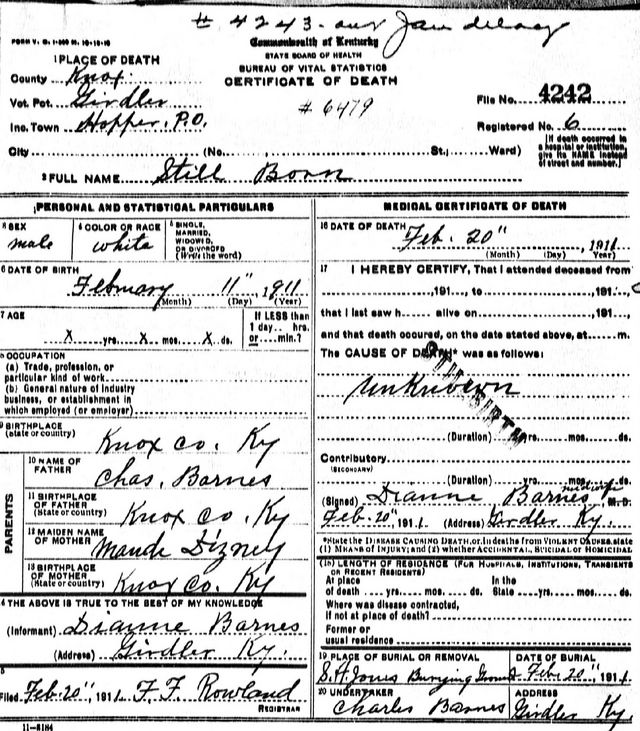 # 4243-
FORM V. S. 1-
Commonwealth of Kentucky
STATE BOARD OF HEALTH
BUREAU OF VITAL STATISTICS
CERTIFICATE OF DEATH
# 6479
1 PLACE OF DEATH
County Knox
Vot. Pct. Girdler
Inc. Town Hopper, P.O.
City (No. St.; Ward)
File No. 4242
Registered No. 6
[If death occurred in
a hospital or institution,
give its NAME instead
of street and number.]
2 FULL NAME Still Born
PERSONAL AND STATISTICAL PARTICULARS
3 SEX
male
4 COLOR OR RACE
white
5 SINGLE,
MARRIED,
WIDOWED,
OR DIVORCED
(Write the word)
6 DATE OF BIRTH
February 11", 1911
(Month) (Day) (Year)
7 AGE
X yrs. X mos. X ds.
If LESS than
1 day... hrs.
or... min.?
8 OCCUPATION
(a) Trade, profession, or
particular kind of work
(b) General nature of industry
business, or establishment in
which employed (or employer)
9 BIRTHPLACE
(state or country)
Knox Co. Ky
PARENTS
10 NAME OF
FATHER
Chas. Barnes
11 BIRTHPLACE
OF FATHER
(State or country)
Knox Co. Ky
12 MAIDEN NAME
OF MOTHER
Maude Dizney
13 BIRTHPLACE
OF MOTHER
(State or country)
Knox Co. Ky
14 THE ABOVE IS TRUE TO THE BEST OF MY KNOWLEDGE
(Informant) Dianne Barnes
(Address) Girdler Ky.
15
Filed Feb. 20", 1911 F. F. Rowland
REGISTRAR
11-8184
MEDICAL CERTIFICATE OF DEATH
16 DATE OF DEATH
Feb. 20", 1911
(Month) (Day) (Year)
17 I HEREBY CERTIFY, That I attended deceased from
, 191 , to , 191 ,
that I last saw h alive on , 191 ,
and that death occured, on the date stated above, at m.
The CAUSE OF DEATH* was as follows:
Unknown
STILL BIRTH
(Duration) yrs. mos. ds.
Contributory
(SECONDARY)
(Duration) yrs. mos. ds.
(Signed) Dianne Barnes midwife M.D.
Feb. 20", 1911 (Address) Girdler Ky.
*State the DISEASE CAUSING DEATH, or, in deaths from VIOLENT CAUSES, state
(1) MEANS OF INJURY; and (2) whether ACCIDENTAL, SUICIDAL or HOMICIDAL
18 LENGTH OF RESIDENCE (FOR HOSPITALS, INSTITUTIONS, TRANSIENTS
OR RECENT RESIDENTS)
At place
of death yrs. mos. ds.
In the
State yrs. mos. ds.
Where was disease contracted,
if not at place of death?
Former or
usual residence
19 PLACE OF BURIAL OR REMOVAL
S. H. Jones Burying Ground
DATE OF BURIAL
Feb. 20", 1911
20 UNDERTAKER
Charles Barnes
ADDRESS
Girdler Ky.